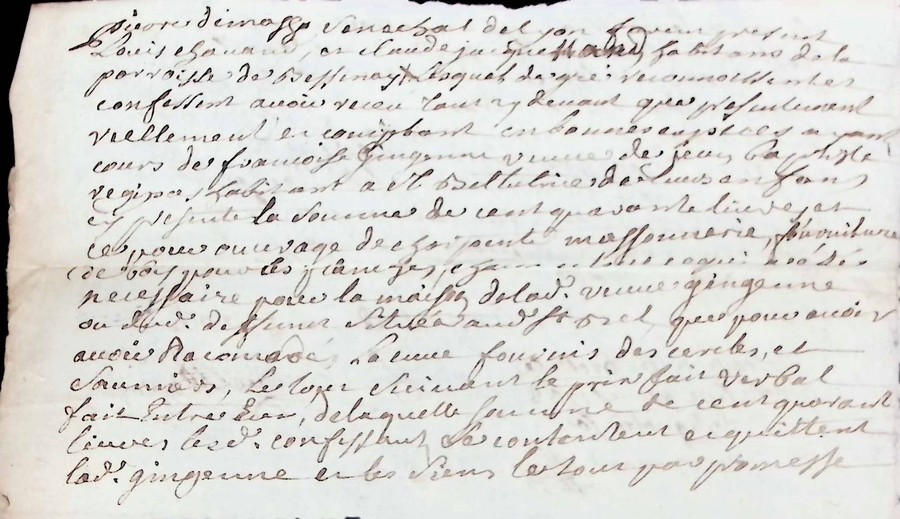 Pierre dimasso Senechal de Lyon furent presens
Louis chavand, et Claude jacque habitans de la
parroisse de Bessenay lesquels de gré reconnoissent et
confessent avoir receu tant cy devant que presentement
reellement et comptant en bonnes especes ayant
cours de françoise gingenne veuve de jean baptiste
habitant a St Bel tutrice de leurs enfans
cy presente la somme de cent quarante livres, et
ce pour ouvrage de charpente massonnerie, fourniture
de bois pour les
necessaire pour la maison de lad. veuve gingenne
ou sesd. Située aud. St bel, que pour avoir
avoir Racomodé, La cuve fournis des cercles, et
Le tout Suivant le prix fait verbal
fait Entre Eux, de laquelle somme de cent quarante
livres lesd. confessant Se contentent et quittent
lad. gingenne et les Siens Le tout par promesse